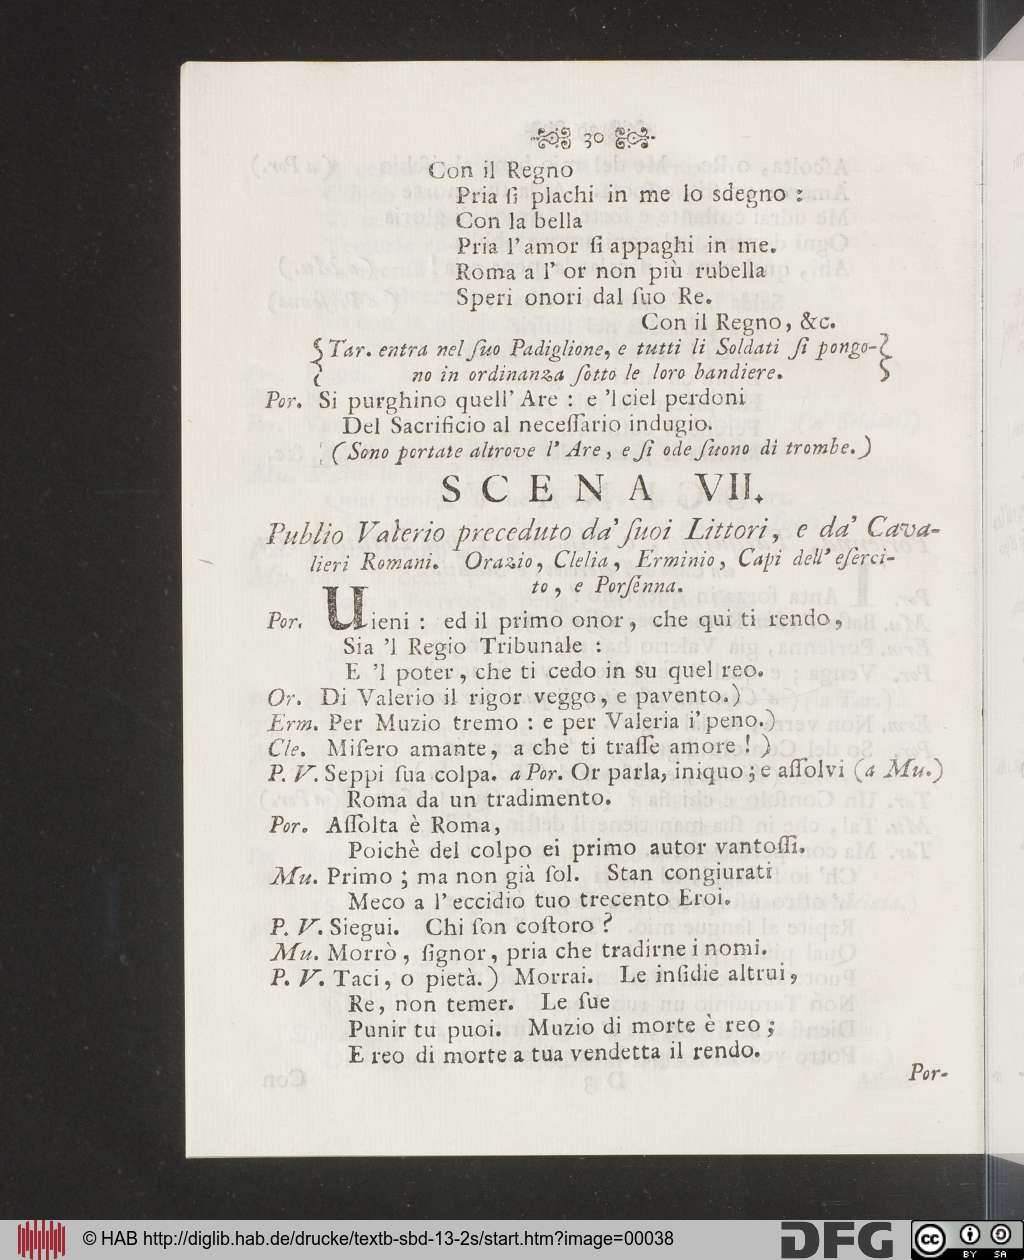 30
Con il Regno
Pria ſi plachi in me lo sdegno :
Con la bella
Pria l' amor ſi appaghi in me.
Roma a l' or non più rubella
Speri onori dal ſuo Re.
Con il Regno, &c.
Tar. entra nel ſuo Padiglione, e tutti li Soldati ſi pongo-
no in ordinanza ſotto le loro bandiere.
Por. Si purghino quell' Are : e 'l ciel perdoni
Del Sacrificio al neceſſario indugio.
(Sono portate altrove l' Are, e ſi ode ſuono di trombe.)
SCENA VII.
Publio Valerio preceduto da' ſuoi Littori, e da' Cava-
lieri Romani. Orazio, Clelia, Erminio, Capi dell' eſerci-
to, e Porſenna.
Por. Uieni : ed il primo onor, che qui ti rendo,
Sia 'l Regio Tribunale :
E 'l poter, che ti cedo in su quel reo.
Or. Di Valerio il rigor veggo, e pavento.)
Erm. Per Muzio tremo : e per Valeria i' peno.)
Cle. Miſero amante, a che ti traſſe amore ! )
P. V. Seppi ſua colpa. a Por. Or parla, iniquo ; e aſſolvi (a Mu.)
Roma da un tradimento.
Por. Aſſolta è Roma,
Poichè del colpo ei primo autor vantoſſi.
Mu. Primo ; ma non già ſol. Stan congiurati
Meco a l' eccidio tuo trecento Eroi.
P. V. Siegui. Chi ſon coſtoro ?
Mu. Morrò, ſignor, pria che tradirne i nomi.
P. V. Taci, o pietà.) Morrai. Le inſidie altrui,
Re, non temer. Le ſue
Punir tu puoi. Muzio di morte è reo ;
E reo di morte a tua vendetta il rendo.
Por-
© HAB http://diglib.hab.de/drucke/textb-sbd-13-2s/start.htm?image=00038
DFG
cc BY SA